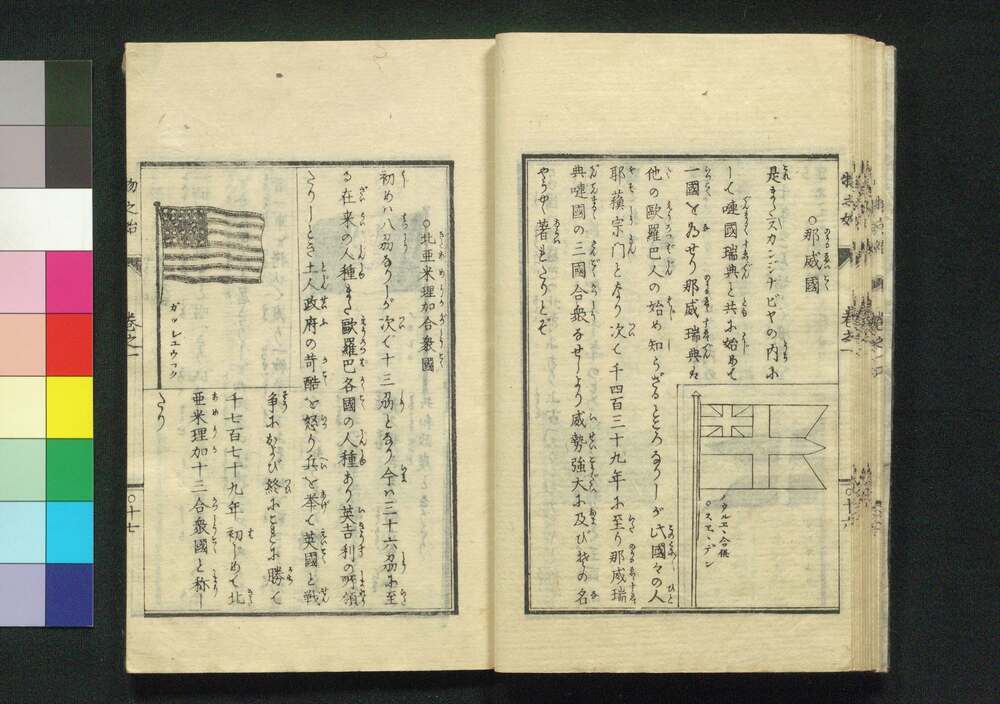 ○那威國
是またスカンジナビヤの内に
して嗹國瑞典と共に始めて
一國を為せり那威瑞典は
他の歐羅巴人の始め知らざるところなりしが此國々の人
耶蘓宗门となり次で千四百三十九年に至り那威瑞
典嗹國の三國合衆なせしより威勢強大に及び其の名
やうやく著れたりとぞ
ノヲルエー合併
○スエーデン
○北亜米理加合衆國
初めハ八刕なりしが次で十三刕となり今ハ三十六刕に至
る在来の人種また歐羅巴各國の人種あり英吉利の所領
たりしとき土人政府の苛酷を怒り兵を挙て英國と戦
争におよび終にこれに勝て
千七百七十九年初しめて北
亜米理加十三合衆國と称し
たり
物之始
巻之一
○十七